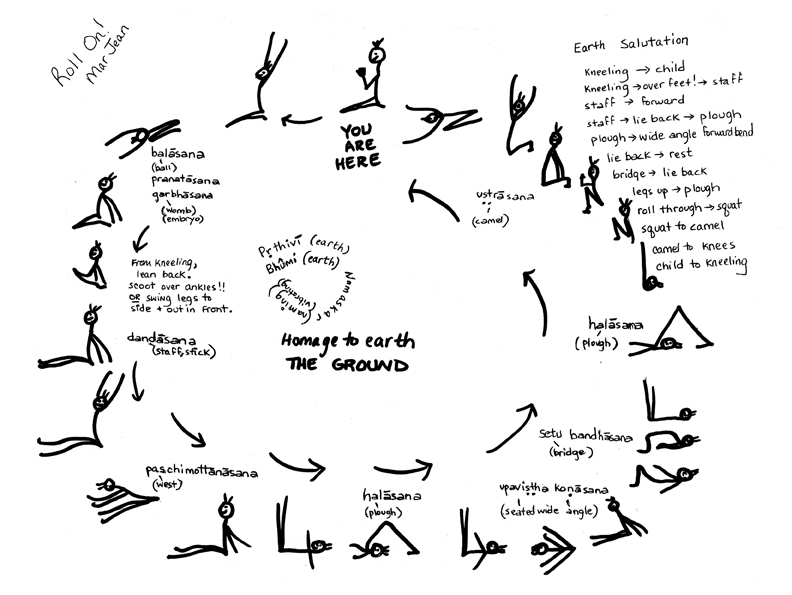 Roll On!
Mar Jean
Earth Salutation
Kneeling → child
Kneeling → over feet! → staff
staff → forward
staff → lie back → plough
plough → wide angle forward bend
lie back → rest
bridge → lie back
legs up → plough
roll through → squat
squat to camel
camel to knees
child to kneeling
YOU
ARE
HERE
balāsana
(ball)
pranatāsana
garbhāsana
(womb)
(embryo)
From kneeling,
lean back.
scoot over ankles!!
OR swing legs to
side + out in front.
daṇḍāsana
(staff, stick)
paschimottānāsana
(west)
halāsana
(plough)
upaviṣṭha koṇāsana
(seated wide angle)
setu bandhāsana
(bridge)
halāsana
(plough)
uṣṭrāsana
(camel)
Pṛthivī (earth)
Bhūmi (earth)
Namaskar
(naming)
(vibrating)
Homage to earth
THE GROUND